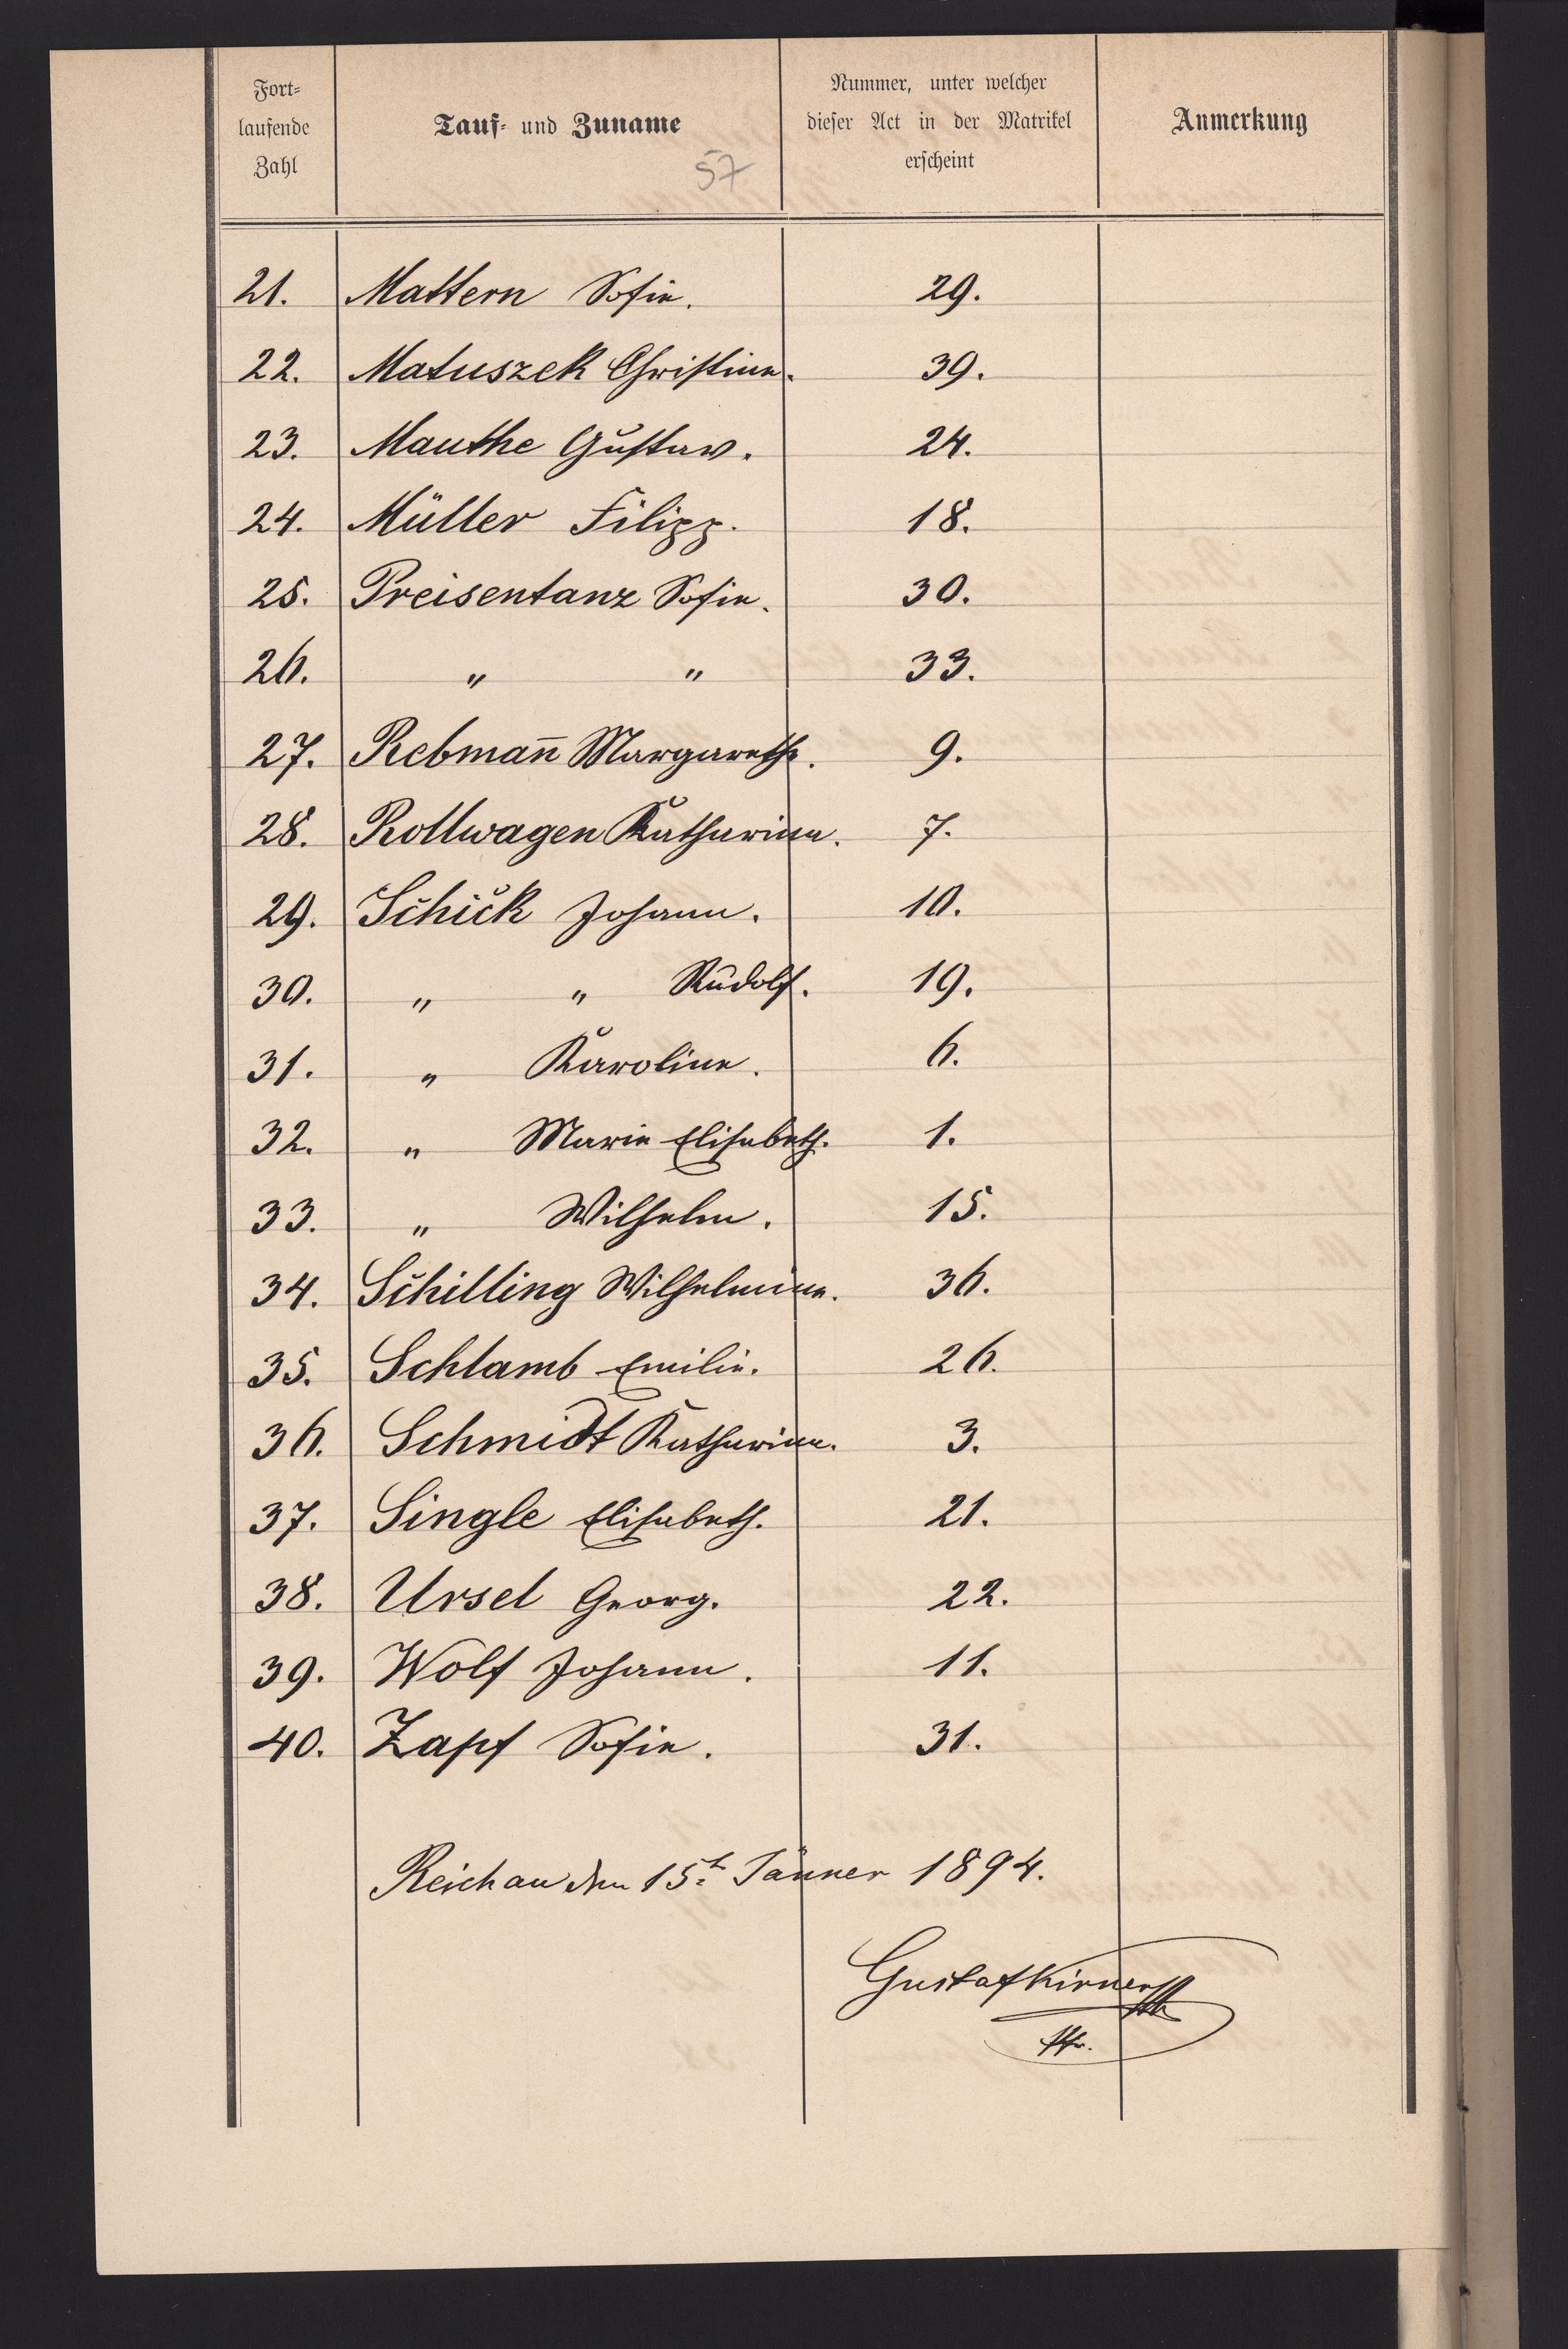 Fort-
laufende
Zahl
Tauf- und Zuname
57
Nummer, unter welcher
dieser Act in der Matrikel
erscheint
Anmerkung
21. Mattern Sofie. 29.
22. Matuszek Christine. 39.
23. Mauthe Gustav. 24.
24. Müller Filipp. 18.
25. Preisentanz Sofie. 30.
26. " " 33.
27. Rebmañ Margarethe. 9.
28. Rollwagen Katharina. 7.
29. Schick Johann. 10.
30. " " Rudolf. 19.
31. " Karoline. 6.
32. " Marie Elisabeth. 1.
33. " Wilhelm. 15.
34. Schilling Wilhelmine. 36.
35. Schlamb Emilie. 26.
36. Schmidt Katharina. 3.
37. Single Elisabeth. 21.
38. Ursel Georg. 22.
39. Wolf Johann. 11.
40. Zapf Sofie. 31.
Reichau den 15t Jänner 1894.
Gustaf Kirner
Pfr.